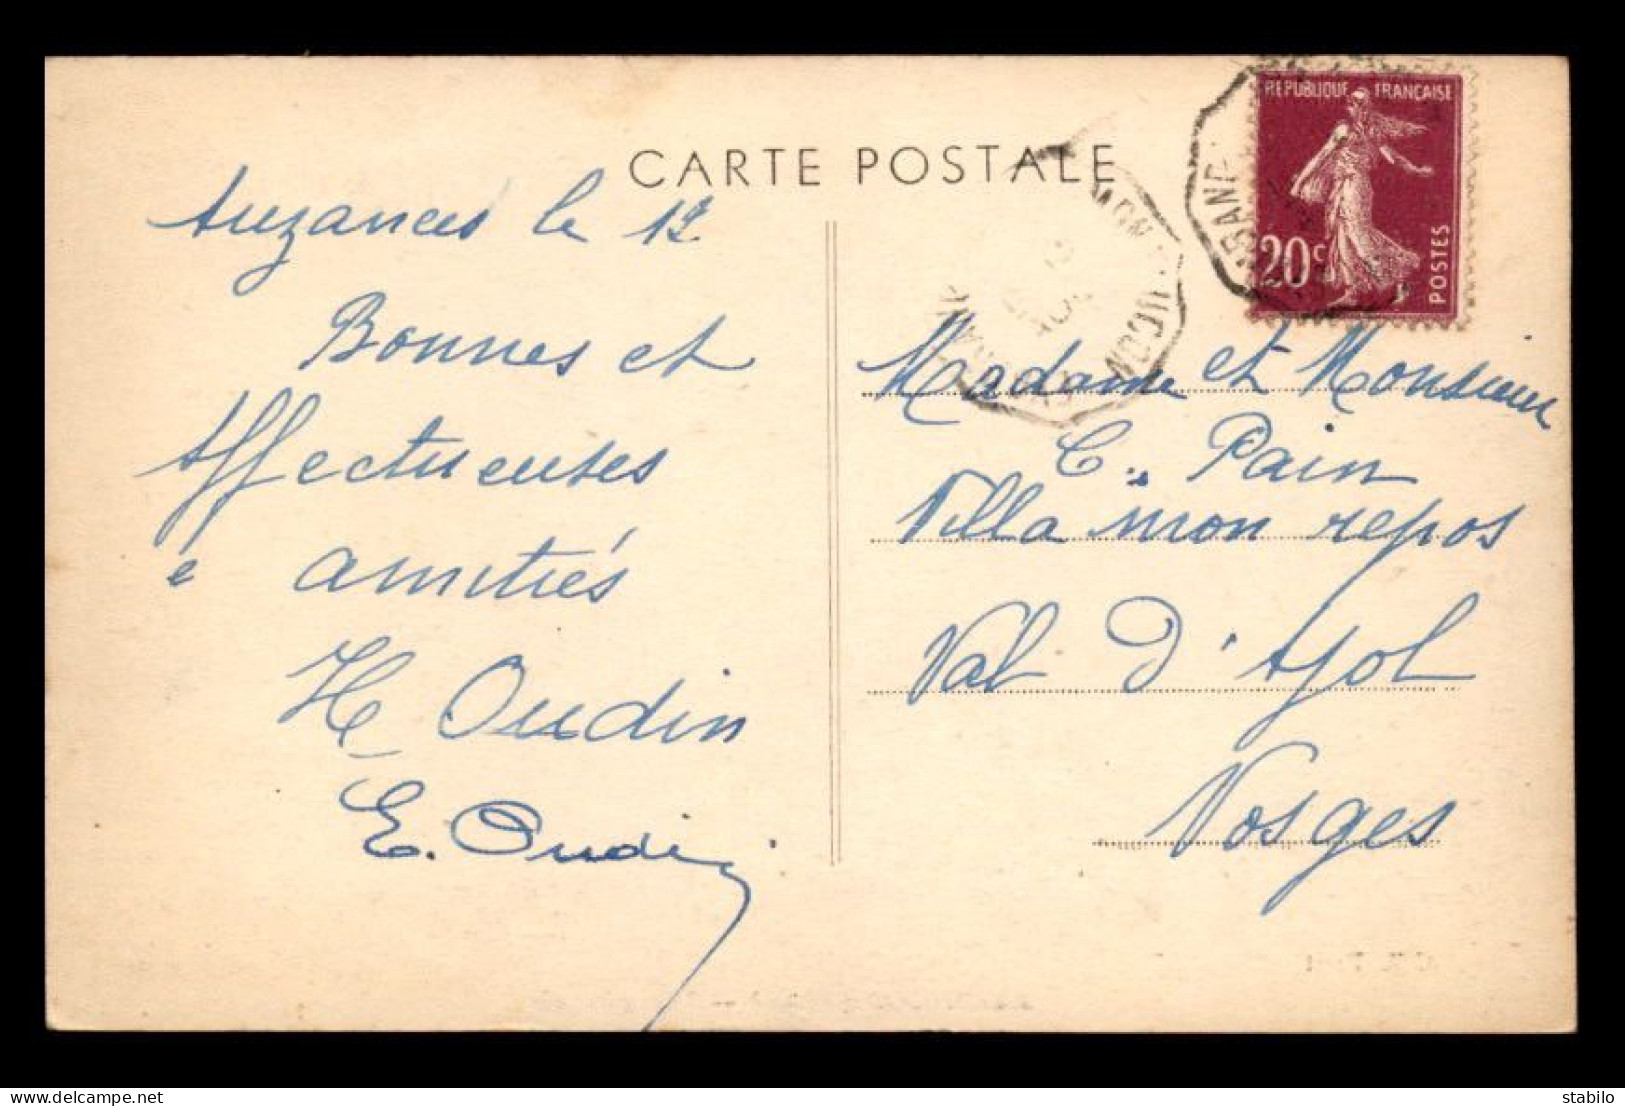 CARTE POSTALE
REPUBLIQUE FRANÇAISE
20c
POSTES
Auzances le 12
Bonnes et
Affectueuses
amitiés
H Oudin
E. Oudin
Madame et Monsieur
C. Pain
Villa mon repos
Val d'Ajol
Vosges
delcampe.net
stabilo